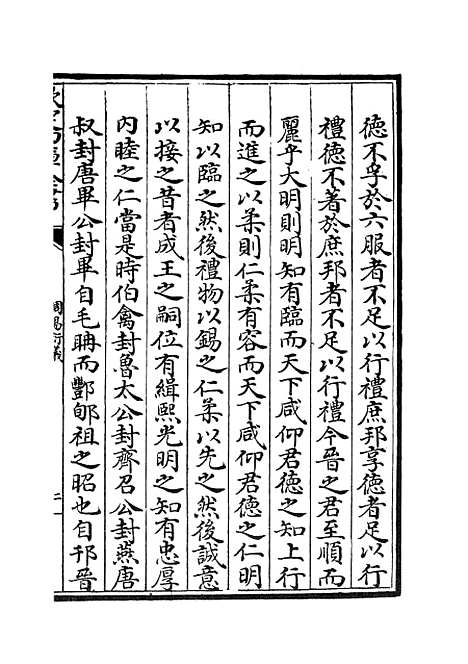 德不孚於六服者不足以行禮庶邦享德者足以行
禮德不著於庶邦者不足以行禮今晉之君至順而
麗乎大明則明知有臨而天下咸仰君德之知上行
而進之以柔則仁柔有容而天下咸仰君德之仁明
知以臨之然後禮物以錫之仁柔以先之然後誠意
以接之昔者成王之嗣位有緝熙光明之知有忠厚
内睦之仁當是時伯禽封魯太公封齊召公封燕唐
叔封唐畢公封畢自毛聃而酆郇祖之昭也自邘晉
欽定四庫全書
周易衍義
二